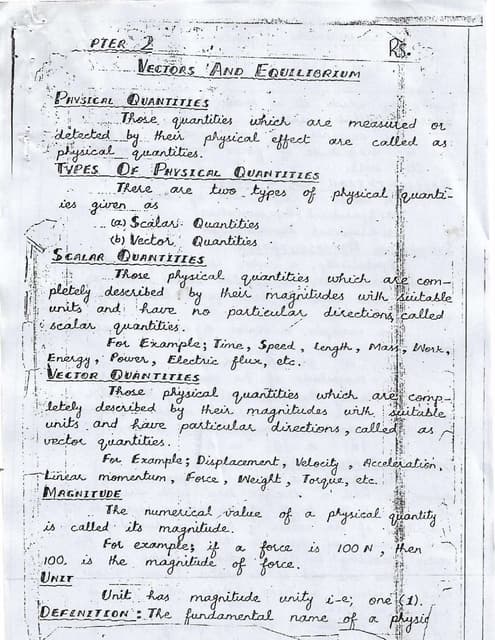 PTER 2
Rs.
VECTORS AND EQUILIBRIUM
PHYSICAL QUANTITIES
Those quantities which are measured or
detected by their physical effect are called as
physical quantities.
TYPES OF PHYSICAL QUANTITIES
There are two types of physical quanti-
ies given as
(a) Scalar Quantities
(b) Vector Quantities
SCALAR QUANTITIES
Those physical quantities which are com-
pletely described by their magnitudes with suitable
units and have no particular directions, called
scalar quantities.
For Example; Time, Speed, Length, Mass, Work,
Energy, Power, Electric flux, etc.
VECTOR QUANTITIES
Those physical quantities which are comp-
letely described by their magnitudes with suitable
units and have particular directions, called as
vector quantities.
For Example; Displacement, Velocity, Acceleration,
Linear momentum, Force, Weight, Torque, etc.
MAGNITUDE
The numerical value of a physical quantity
is called its magnitude.
For example; if a force is 100 N, then
100 is the magnitude of force.
UNIT
Unit has magnitude unity i-e; one (1).
DEFENITION : The fundamental name of a physic